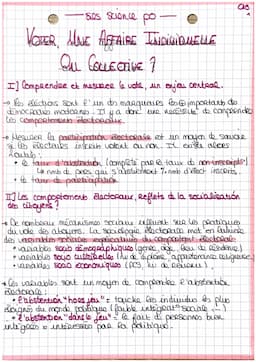 SES Science po
VOTER, UNE AFFAIRE INDIVIDUELLE
OU COLLECTIVE ?
I] Comprendre et mesurer le vote, un enjeu central.
→ les élections sont l'un des marqueurs les + importants de
démocraties modernes. Il y a donc une nécessité de comprendre
les comportements électoraux.
→ Mesurer la participation électorale est un moyen de savoir
si les électeurs inscrits votent ou non. Il existe
• le taux d'abstention (complété par le taux de non-inscrits)
nmb de pers qui s'abstiennent % nmb d'élect inscrits.
• le taux de participation
II] Les comportements électoraux, reflets de la socialisation
des citoyens.
→ De nombreux mécanismes sociaux influent sur les pratiques
du vote des citoyens. La sociologie électorale met en lumière
des variables sociales explicatives du comportement électoral
• variables socio démographiques (sexe, âge, lieu de résidence)
• variables socio culturelles (niv de diplôme, appartenance religieuse)
• variables socio économiques (PCS, niv de revenu).
→ Ces variables sont un moyen de comprendre l'abstention
électorale :
• l'abstention "hors jeu" : touche les individus les plus
éloignés du monde politique (faible intégration sociale...)
• l'abstention "dans le jeu" : le fait de personnes bien
intégrées et intéressées par la politique.